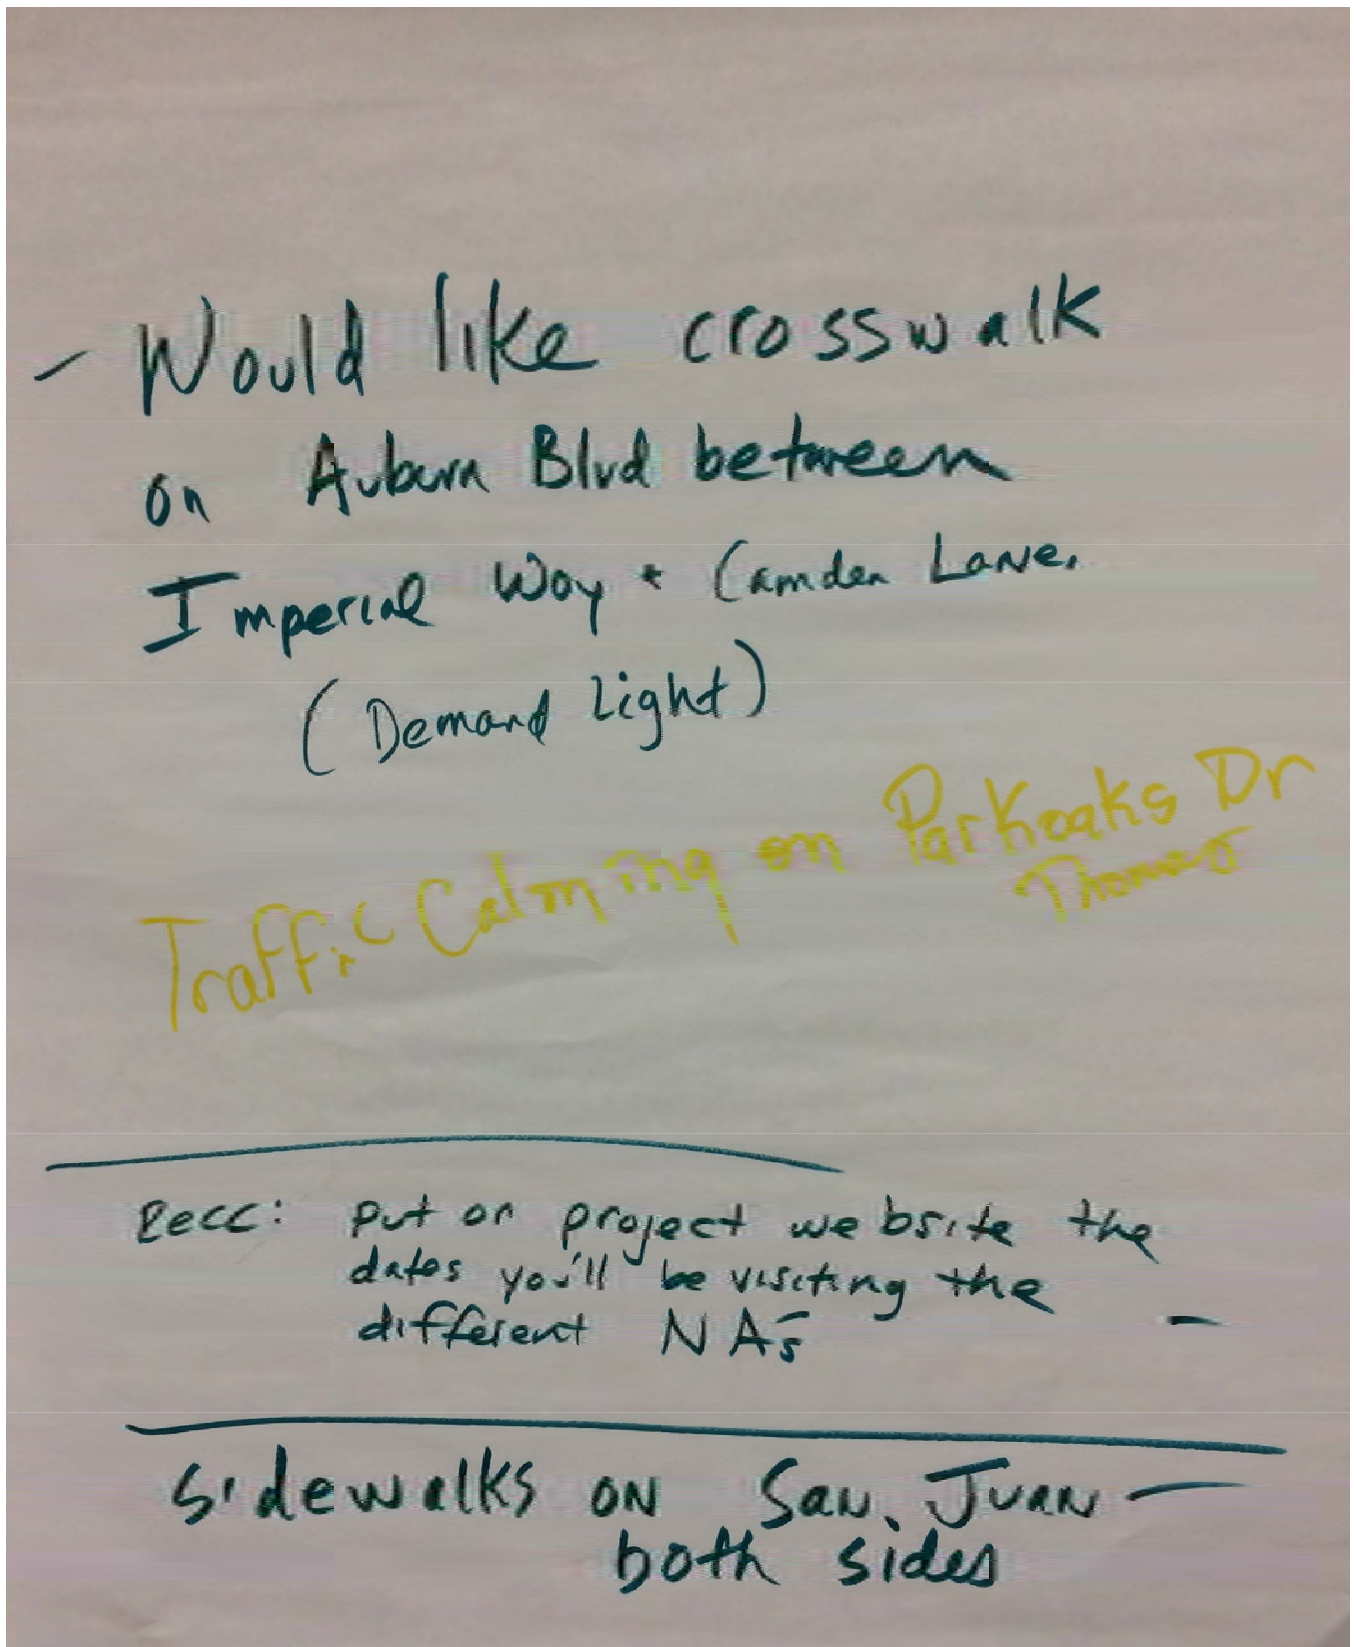 - Would like crosswalk
on Auburn Blvd between
Imperial Way + Camden Lane.
(Demand Light)
Traffic Calming on Parkoaks Dr
Thomas
Recc: put on project website the
dates you'll be visiting the
different NAs -
Sidewalks on San Juan -
both sides